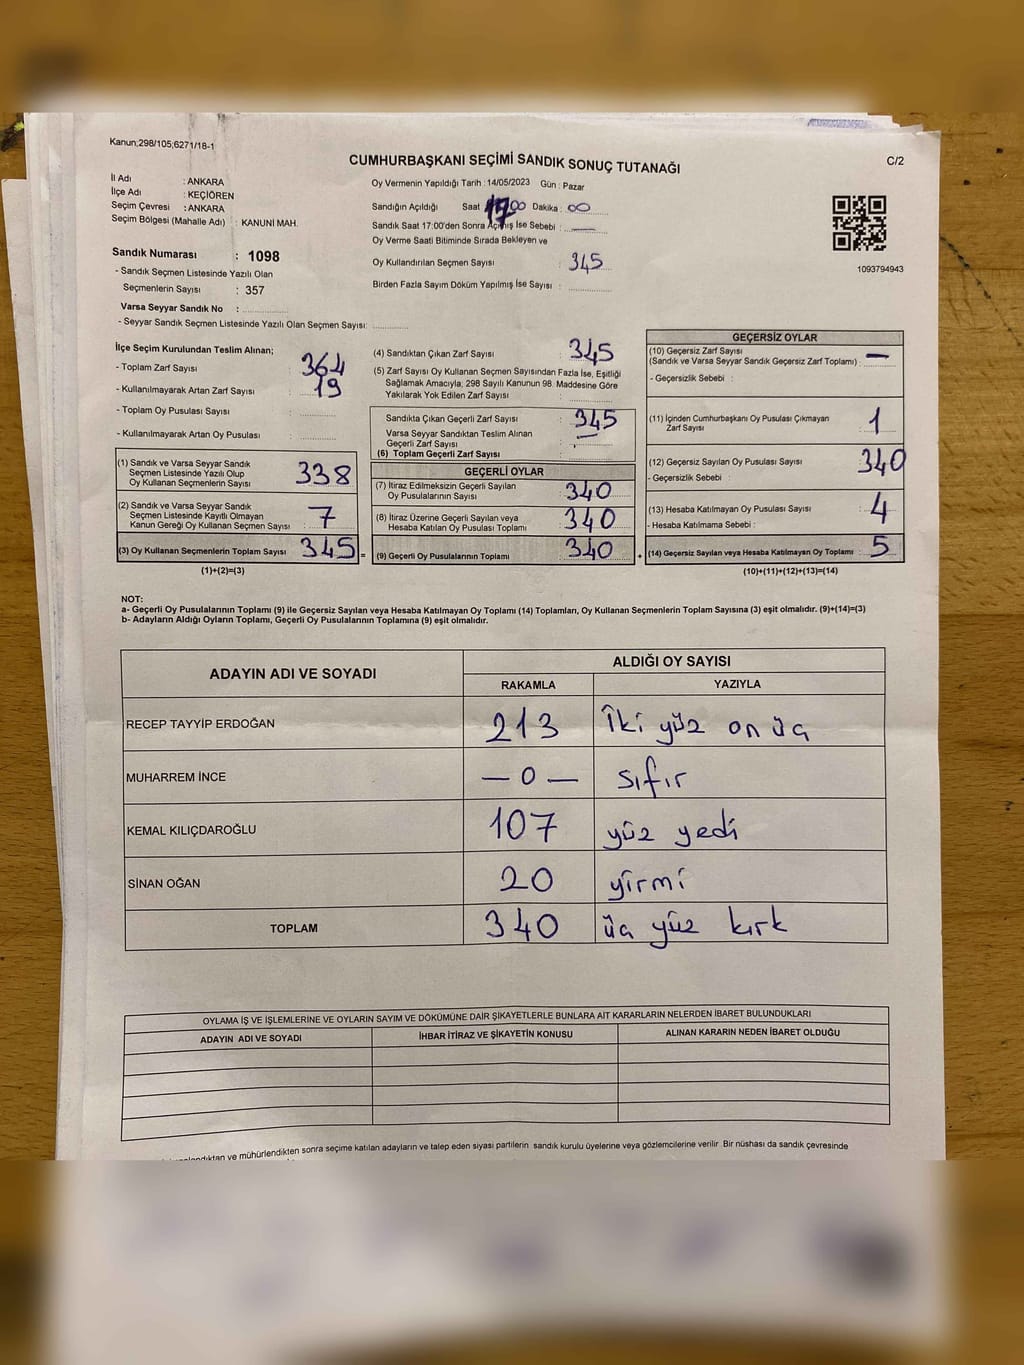 Kanun;298/105;6271/18-1
CUMHURBAŞKANI SEÇİMİ SANDIK SONUÇ TUTANAĞI
C/2
İl Adı : ANKARA
İlçe Adı : KEÇİÖREN
Seçim Çevresi : ANKARA
Seçim Bölgesi (Mahalle Adı) : KANUNİ MAH.
Sandık Numarası : 1098
- Sandık Seçmen Listesinde Yazılı Olan
Seçmenlerin Sayısı : 357
Varsa Seyyar Sandık No :
- Seyyar Sandık Seçmen Listesinde Yazılı Olan Seçmen Sayısı:
Oy Vermenin Yapıldığı Tarih : 14/05/2023 Gün : Pazar
Sandığın Açıldığı Saat 17 00 Dakika : 00
Sandık Saat 17:00'den Sonra Açılmış İse Sebebi : —
Oy Verme Saati Bitiminde Sırada Bekleyen ve
Oy Kullandırılan Seçmen Sayısı : 345
Birden Fazla Sayım Döküm Yapılmış İse Sayısı :
1093794943
İlçe Seçim Kurulundan Teslim Alınan;
- Toplam Zarf Sayısı : 364
- Kullanılmayarak Artan Zarf Sayısı : 19
- Toplam Oy Pusulası Sayısı :
- Kullanılmayarak Artan Oy Pusulası :
(1) Sandık ve Varsa Seyyar Sandık
Seçmen Listesinde Yazılı Olup
Oy Kullanan Seçmenlerin Sayısı : 338
(2) Sandık ve Varsa Seyyar Sandık
Seçmen Listesinde Kayıtlı Olmayan
Kanun Gereği Oy Kullanan Seçmen Sayısı : 7
(3) Oy Kullanan Seçmenlerin Toplam Sayısı : 345 =
(1)+(2)=(3)
(4) Sandıktan Çıkan Zarf Sayısı : 345
(5) Zarf Sayısı Oy Kullanan Seçmen Sayısından Fazla İse, Eşitliği
Sağlamak Amacıyla, 298 Sayılı Kanunun 98. Maddesine Göre
Yakılarak Yok Edilen Zarf Sayısı :
Sandıkta Çıkan Geçerli Zarf Sayısı : 345
Varsa Seyyar Sandıktan Teslim Alınan
Geçerli Zarf Sayısı : —
(6) Toplam Geçerli Zarf Sayısı :
GEÇERLİ OYLAR
(7) İtiraz Edilmeksizin Geçerli Sayılan
Oy Pusulalarının Sayısı : 340
(8) İtiraz Üzerine Geçerli Sayılan veya
Hesaba Katılan Oy Pusulası Toplamı : 340
(9) Geçerli Oy Pusulalarının Toplamı : 340 +
GEÇERSİZ OYLAR
(10) Geçersiz Zarf Sayısı
(Sandık ve Varsa Seyyar Sandık Geçersiz Zarf Toplamı) : —
- Geçersizlik Sebebi :
(11) İçinden Cumhurbaşkanı Oy Pusulası Çıkmayan
Zarf Sayısı : 1
(12) Geçersiz Sayılan Oy Pusulası Sayısı : 340
- Geçersizlik Sebebi :
(13) Hesaba Katılmayan Oy Pusulası Sayısı : 4
- Hesaba Katılmama Sebebi :
(14) Geçersiz Sayılan veya Hesaba Katılmayan Oy Toplamı : 5
(10)+(11)+(12)+(13)=(14)
NOT:
a- Geçerli Oy Pusulalarının Toplamı (9) ile Geçersiz Sayılan veya Hesaba Katılmayan Oy Toplamı (14) Toplamları, Oy Kullanan Seçmenlerin Toplam Sayısına (3) eşit olmalıdır. (9)+(14)=(3)
b- Adayların Aldığı Oyların Toplamı, Geçerli Oy Pusulalarının Toplamına (9) eşit olmalıdır.
ADAYIN ADI VE SOYADI ALDIĞI OY SAYISI
RAKAMLA YAZIYLA
RECEP TAYYİP ERDOĞAN 213 İki yüz on üç
MUHARREM İNCE — 0 — sıfır
KEMAL KILIÇDAROĞLU 107 yüz yedi
SİNAN OĞAN 20 yirmi
TOPLAM 340 üç yüz kırk
OYLAMA İŞ VE İŞLEMLERİNE VE OYLARIN SAYIM VE DÖKÜMÜNE DAİR ŞİKAYETLERLE BUNLARA AİT KARARLARIN NELERDEN İBARET BULUNDUKLARI
ADAYIN ADI VE SOYADI İHBAR İTİRAZ VE ŞİKAYETİN KONUSU ALINAN KARARIN NEDEN İBARET OLDUĞU
ve mühürlendikten sonra seçime katılan adayların ve talep eden siyasi partilerin sandık kurulu üyelerine veya gözlemcilerine verilir. Bir nüshası da sandık çevresinde